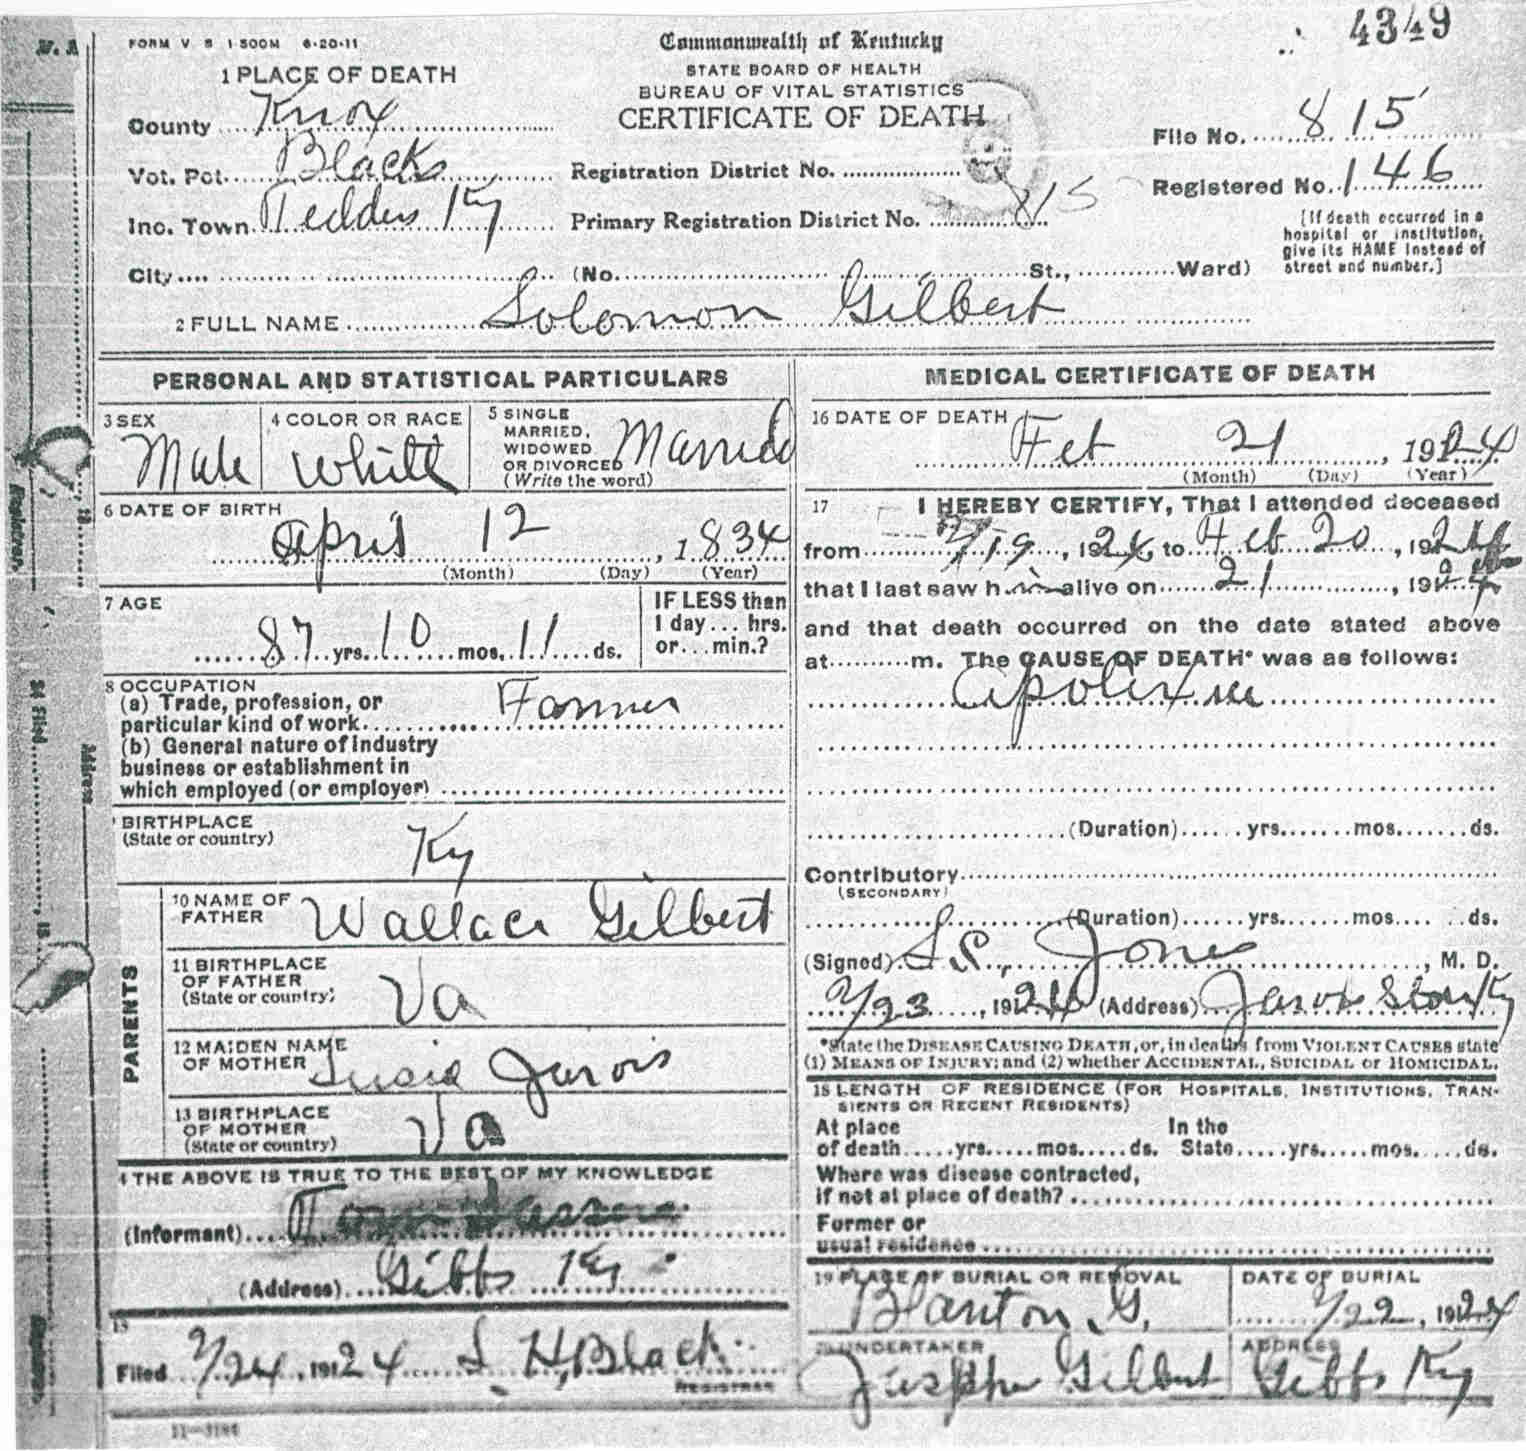 4349
FORM V S 1-500M 6-20-11
Commonwealth of Kentucky
STATE BOARD OF HEALTH
BUREAU OF VITAL STATISTICS
CERTIFICATE OF DEATH
1 PLACE OF DEATH
County Knox
Vot. Pct. Blacks
Inc. Town Tedders Ky
City (No. St., Ward)
Registration District No.
Primary Registration District No. 815
File No. 815
Registered No. 146
[If death occurred in a hospital or institution, give its NAME instead of street and number.]
2 FULL NAME Solomon Gilbert
PERSONAL AND STATISTICAL PARTICULARS
3 SEX Male
4 COLOR OR RACE White
5 SINGLE MARRIED, WIDOWED OR DIVORCED (Write the word) Married
6 DATE OF BIRTH
April 12, 1834
(Month) (Day) (Year)
7 AGE
87 yrs. 10 mos. 11 ds.
IF LESS than
1 day... hrs.
or...min.?
8 OCCUPATION
(a) Trade, profession, or
particular kind of work Farmer
(b) General nature of industry
business or establishment in
which employed (or employer)
BIRTHPLACE
(State or country) Ky
PARENTS
10 NAME OF FATHER Wallace Gilbert
11 BIRTHPLACE OF FATHER (State or country) Va
12 MAIDEN NAME OF MOTHER Susie Jarvis
13 BIRTHPLACE OF MOTHER (State or country) Va
4 THE ABOVE IS TRUE TO THE BEST OF MY KNOWLEDGE
(Informant)
(Address) Gibbs Ky
15
Filed 2/24, 1924 S. H. Black
REGISTRAR
11-3184
MEDICAL CERTIFICATE OF DEATH
16 DATE OF DEATH
Feb 21, 1924
(Month) (Day) (Year)
17 I HEREBY CERTIFY, That I attended deceased
from 2/19, 1924, to Feb 20, 1924
that I last saw him alive on 21, 1924
and that death occurred on the date stated above
at m. The CAUSE OF DEATH* was as follows:
Apolixsee
(Duration) yrs. mos. ds.
Contributory
(SECONDARY)
(Duration) yrs. mos. ds.
(Signed) S. S. Jones, M. D.
2/23, 1924 (Address) Jarvis Store Ky
*State the DISEASE CAUSING DEATH, or, in deaths from VIOLENT CAUSES state
(1) MEANS OF INJURY; and (2) whether ACCIDENTAL, SUICIDAL or HOMICIDAL.
18 LENGTH OF RESIDENCE (FOR HOSPITALS, INSTITUTIONS, TRANSIENTS OR RECENT RESIDENTS)
At place In the
of death yrs. mos. ds. State yrs. mos. ds.
Where was disease contracted,
if not at place of death?
Former or
usual residence
19 PLACE OF BURIAL OR REMOVAL
Blanton G.
DATE OF BURIAL
2/22, 1924
20 UNDERTAKER
Jusephe Gilbert
ADDRESS
Gibbs Ky